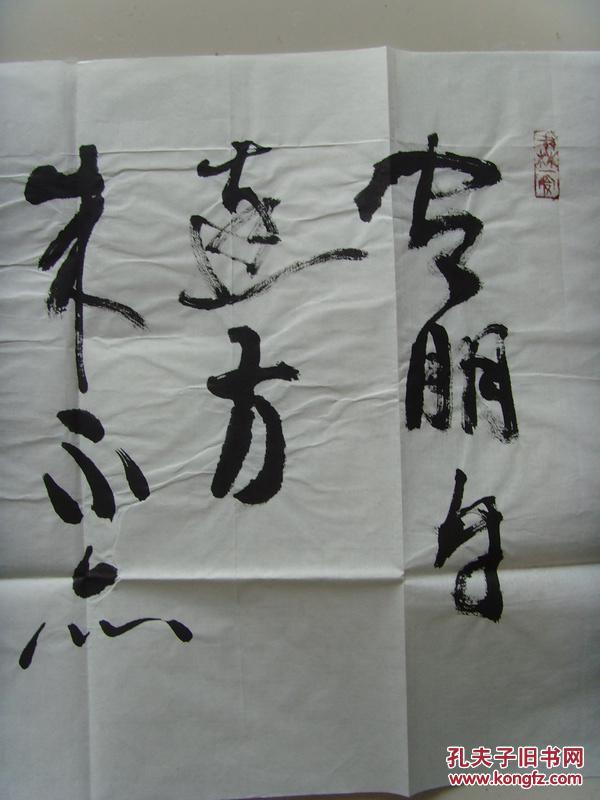 有朋自
遠方
来不亦
孔夫子旧书网
www.kongfz.com